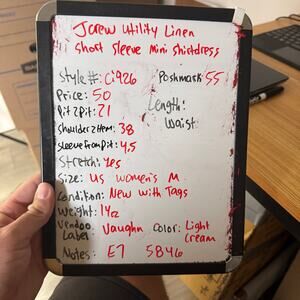 Jcrew Utility Linen
short sleeve mini shirtdress
Style#: Ci926 Poshmark: 55
Price: 50
Length:
Pit2Pit: 21
Waist:
Shoulder2Hem: 38
Sleeve from Pit: 4.5
Stretch: Yes
Size: US women's M
Condition: New with Tags
Weight: 14oz
Vendoo Label: Vaughn Color: Light Cream
Notes: E7 5846